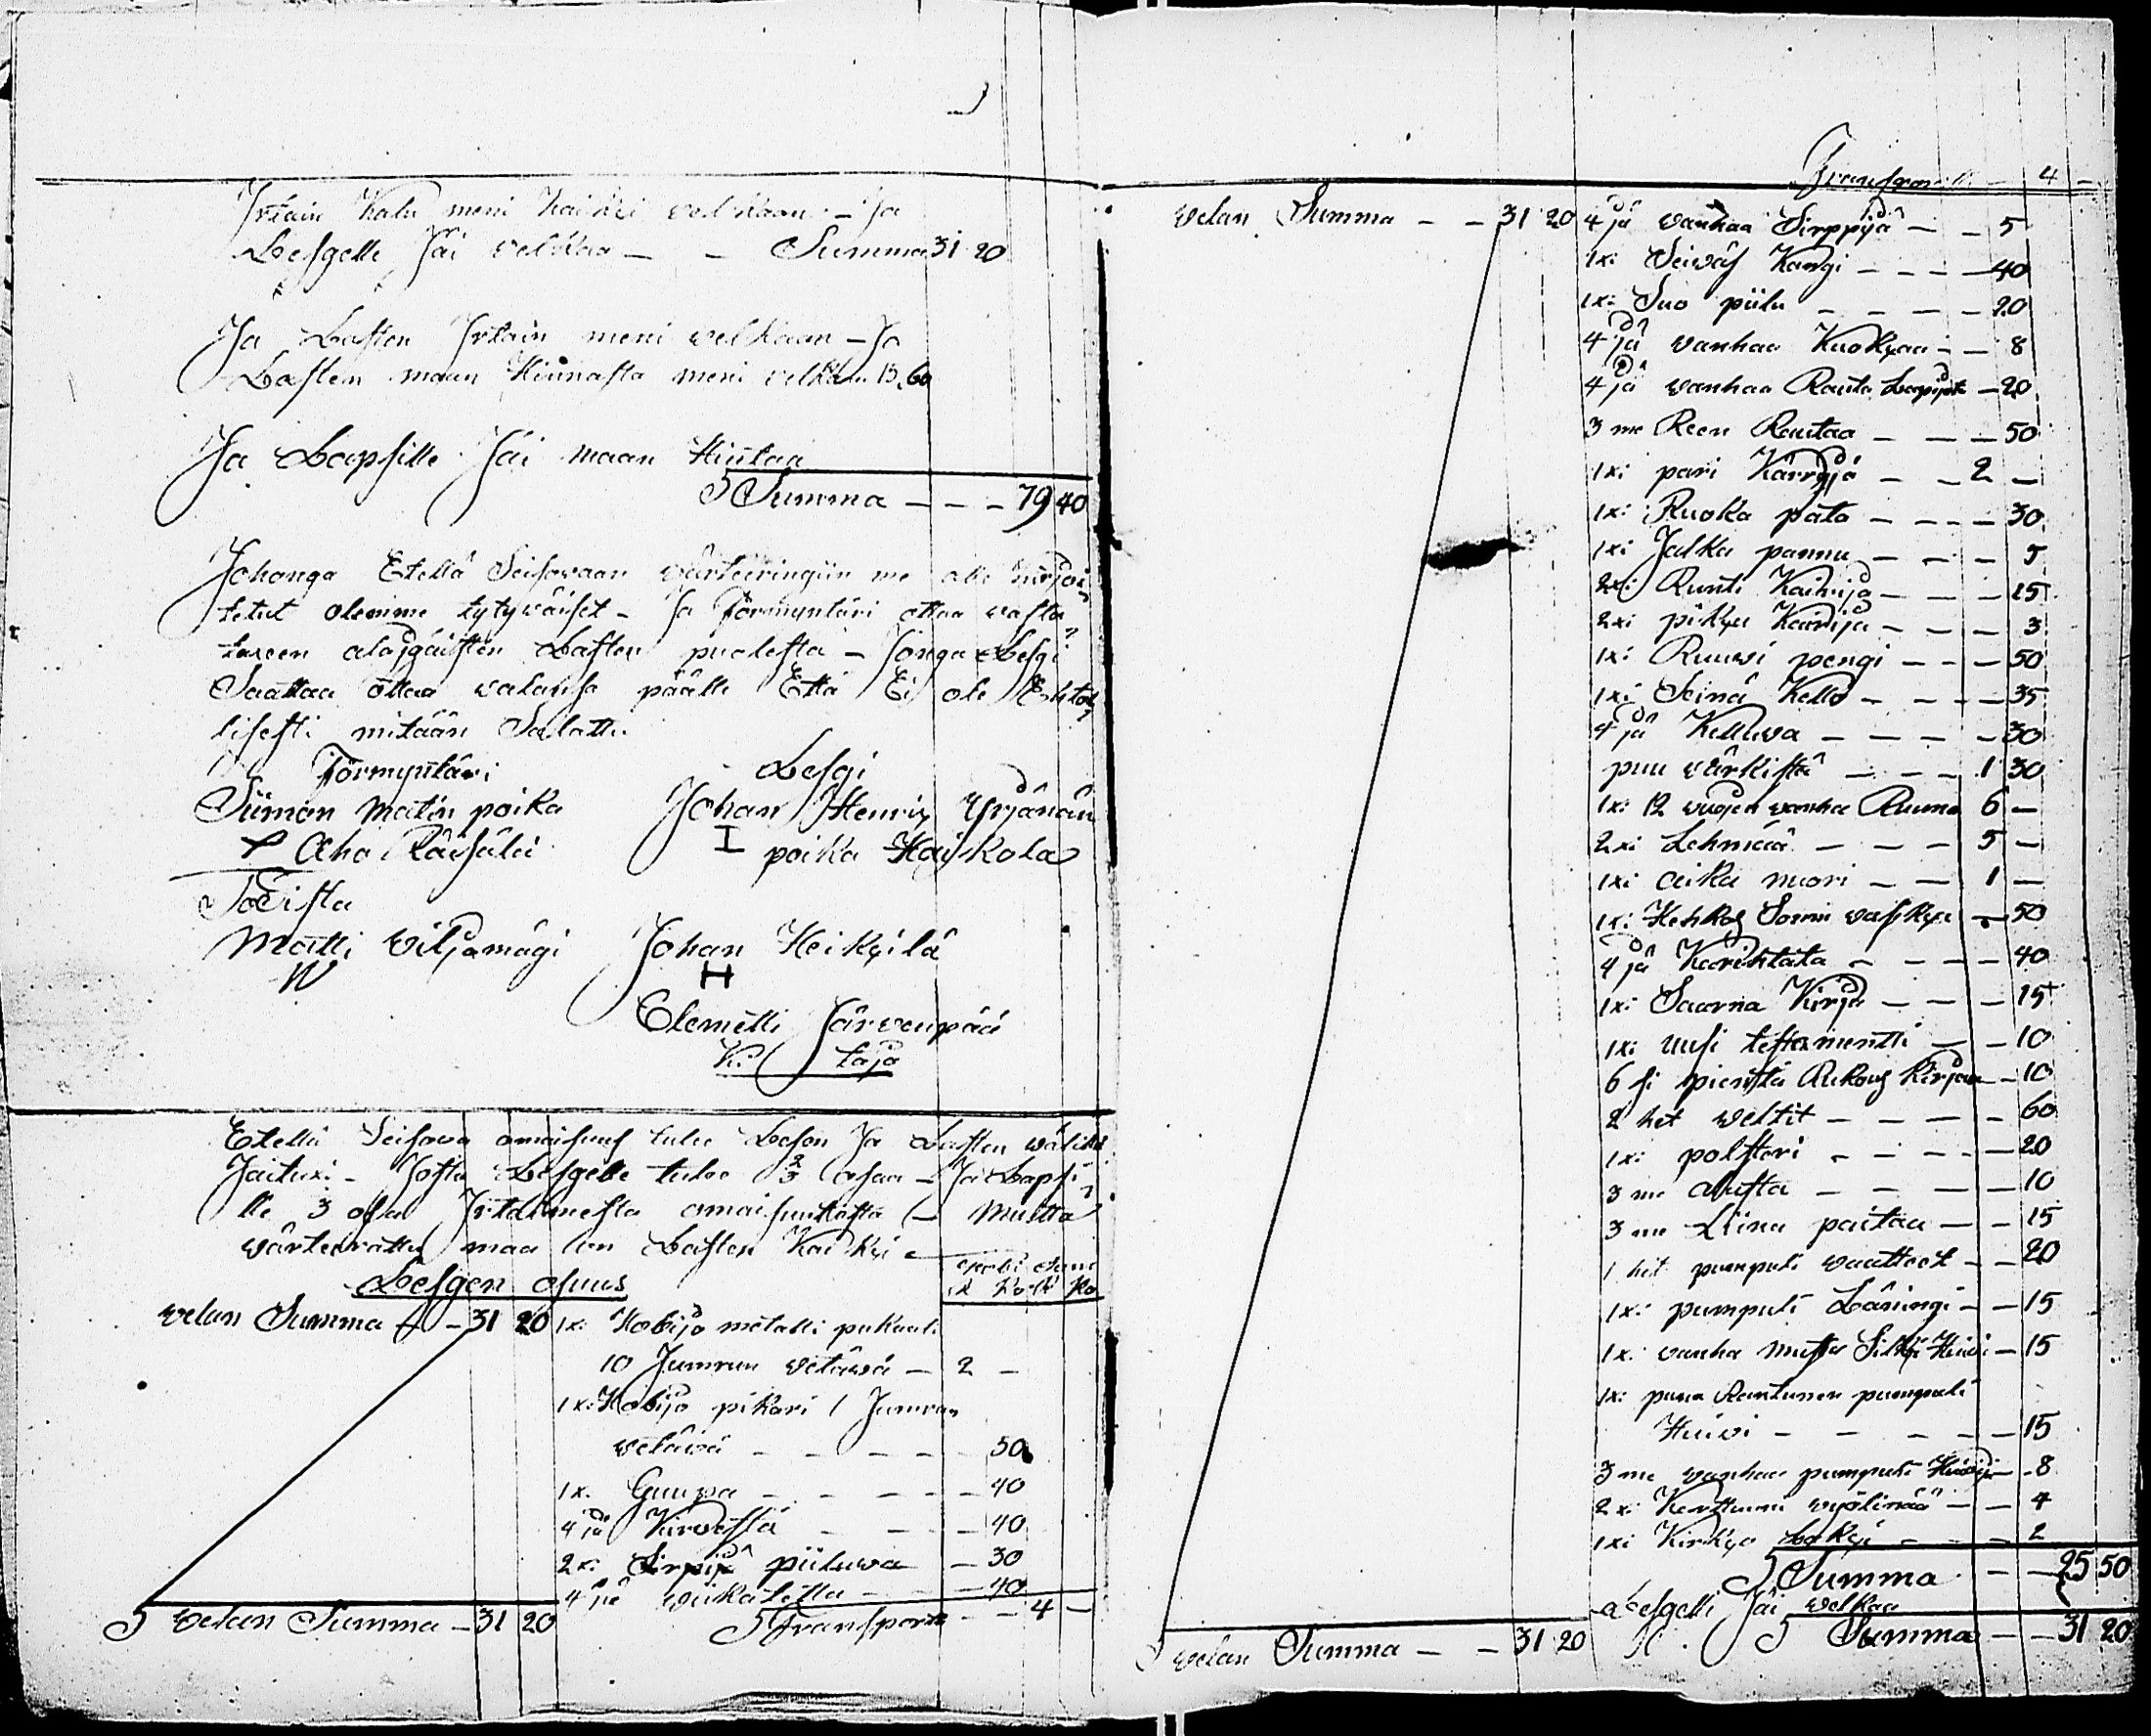 Irtain Kalu meni kaikki velkaan - ja
Lesgelle Jäi velkaa - - Summa 31 20
Ja Lasten Irtain meni velkaan - Ja
Lasten maan Hinnasta meni velkaan 15,60
Ja Lapsille Jäi maan Hintaa
Summa - - - 79 40
Johonga Etellä Seisovaan värteeringiin me alle kirjoi
tetut olemme tytyväiset - Ja Förmyntäri ottaa vasta
taxeen alajgäisten Lasten puolesta - Jonga Lesgi
Saattaa ottaa valansa päälle Että Ei ole Ehtol
lisesti mitään Salattu
Förmyntäri Lesgi
Siimon Matin poika Johan Henrix Yrjänän
Aho Räisälä I poika Haiskola
Todista
Matti Viljamägi Johan Heikyilä
W H
Elemetti Järvenpää
Ki. taja
Etellä Seisova omaisuus tulee Lesgen Ja Lasten välillä
Jaituxi - Josta Lesgelle tulee 2/3 osaa - Ja Lapsi
lle 3 osa Irtaimesta omaisuutesta - Mutta
värteerattu maa on Lasten Kaikki
Lesgen osuus
velan Summa - - 31 20 1xi Hobija metalli pukaali
10 Jumrun vetävä - 2 -
1xi Hobija pikari 1 Jumrun
vetävä - - - - 50
1xi Guupa - - - - 40
4 jä Kirvestä - - - 40
2xi Sirpijä piiluva - 30
4 jä viikatetta - - - 40
velan Summa - 31 20 Transport - - 4 -
Transport - 4 -
velan Summa - - 31 20 4 jä vanhaa Sirppijä - - 5
1xi Seiväs Kangi - - - - 40
1xi Suo piilu - - - - 20
4 jä vanhaa Kuokyaa - - 8
4 jä vanhaa Rauta Lapijota - 20
3 me Reen Rautaa - - - 50
1xi pari Kärryjä - - 2 -
1xi Ruoka pata - - - - 30
1xi Jalka pannu - - - 5
2xi Runti Kaivija - - - 15
2xi pikyu Kaivija - - - 3
1xi Ruuvi pengi - - - 50
1xi Seinä Kello - - - 35
4 jä Kelluva - - - - 30
puu värkistä - - - 1 30
1xi 12 vuojen vanha Ruuna 6 -
2xi Lehmää - - - 5 -
1xi aika nuori - - 1 -
1xi Hehkos Sormi vaskya - 50
4 jä Karihtata - - - - 40
1xi Saarna Kirja - - - 15
1xi Uusi testamentti - - 10
6 si pienstä Rukous Kirjaa - 10
2 het veltit - - - - 60
1xi polsteri - - - - 20
3 me alusta - - - - 10
3 me Liina paitaa - - 15
1 het pumpuli vaatteet - - 20
1xi pumpuli Läningi - - 15
1xi vanha musta Silkki Huivi - 15
1xi puna Rantunen pumpuli
Huivi - - - - - 15
3 me vanhaa pumpuli Huivija - 8
2xi Karttuuni vyölinää - - 4
1xi Kirkyo Lakyi - - - 2
Summa - - 25 50
Lesgelli Jäi velkaa
velan Summa - - 31 20 Summa - - 31 20